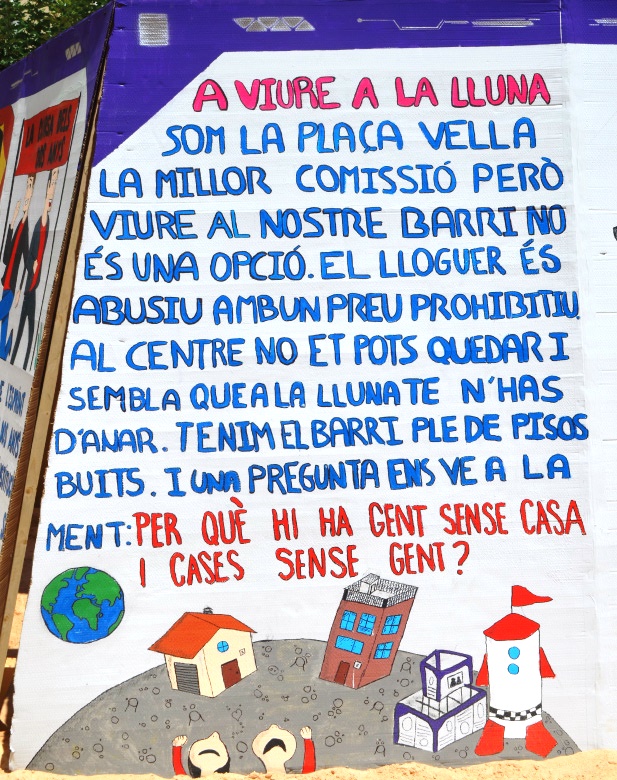 A VIURE A LA LLUNA
SOM LA PLAÇA VELLA
LA MILLOR COMISSIÓ PERÒ
VIURE AL NOSTRE BARRI NO
ÉS UNA OPCIÓ. EL LLOGUER ÉS
ABUSIU AMB UN PREU PROHIBITIU.
AL CENTRE NO ET POTS QUEDAR I
SEMBLA QUE A LA LLUNA TE N'HAS
D'ANAR. TENIM EL BARRI PLE DE PISOS
BUITS. I UNA PREGUNTA ENS VE A LA
MENT: PER QUÈ HI HA GENT SENSE CASA
I CASES SENSE GENT?